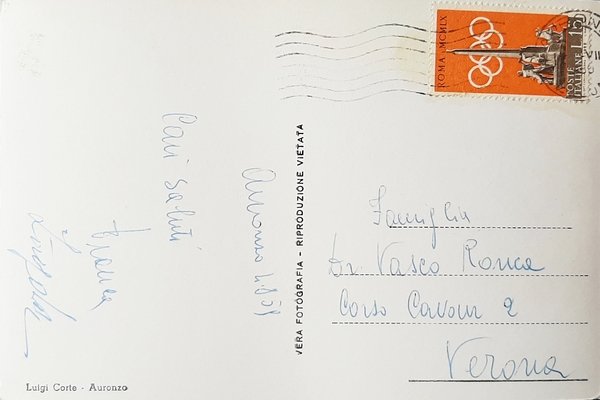 ROMA · MCMLX
L. 15
POSTE ITALIANE
VERA FOTOGRAFIA - RIPRODUZIONE VIETATA
Auronzo
Cari saluti
Franca
Famiglia
Dr. Vasco Ronca
Corso Cavour 2
Verona
Luigi Corte - Auronzo